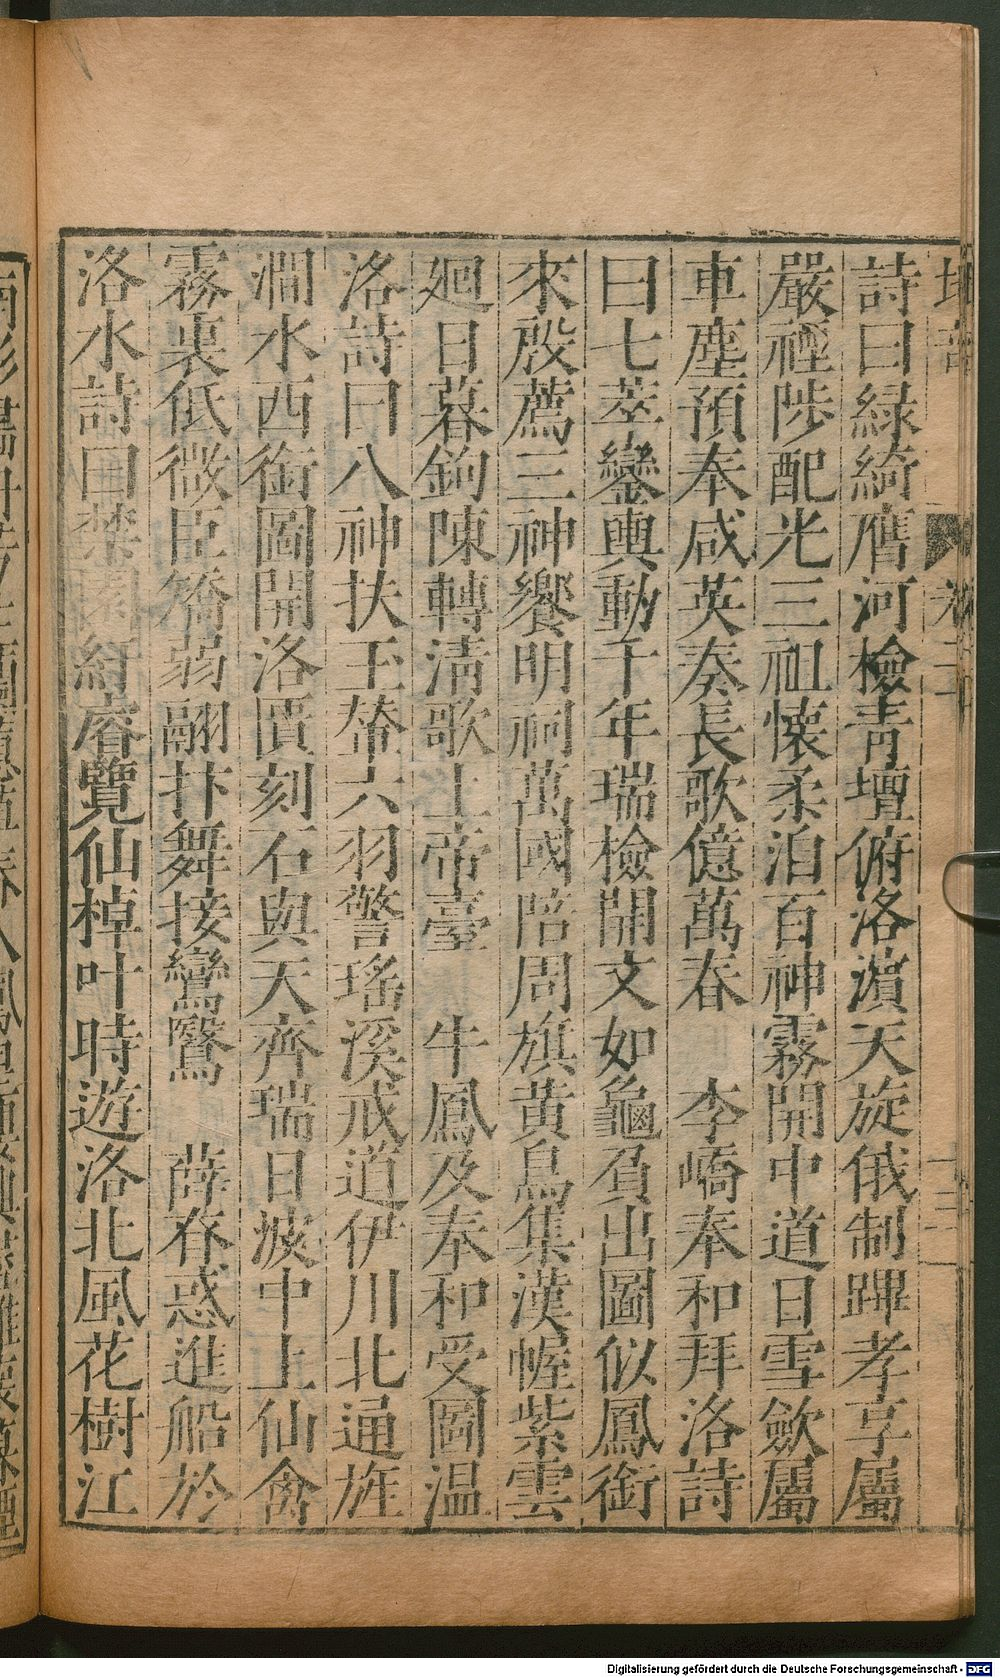 詩曰緑綺膺河檢青壇俯洛濵天旋俄制蹕孝享屬
嚴禋陟配光三祖懐柔洎百神霧開中道日雪斂屬
車塵預奉咸英奏長歌億萬春　李嶠奉和拜洛詩
曰七萃鑾輿動千年瑞檢開文如龜負出圖似鳳銜
來殷薦三神饗明祠萬國陪周旗黄鳥集漢幄紫雲
廻日暮鉤陳轉清歌上帝臺　牛鳳及奉和受圖温
洛詩曰八神扶玉輦六羽警瑤溪戒道伊川北通旌
澗水西銜圖開洛匱刻石與天齊瑞日波中上仙禽
霧裏低微臣矯弱翮抃舞接鸞鷖　薛眘惑進船於
洛水詩曰禁園紆睿覽仙棹叶時遊洛北風花樹江
Digitalisierung gefördert durch die Deutsche Forschungsgemeinschaft - DFG